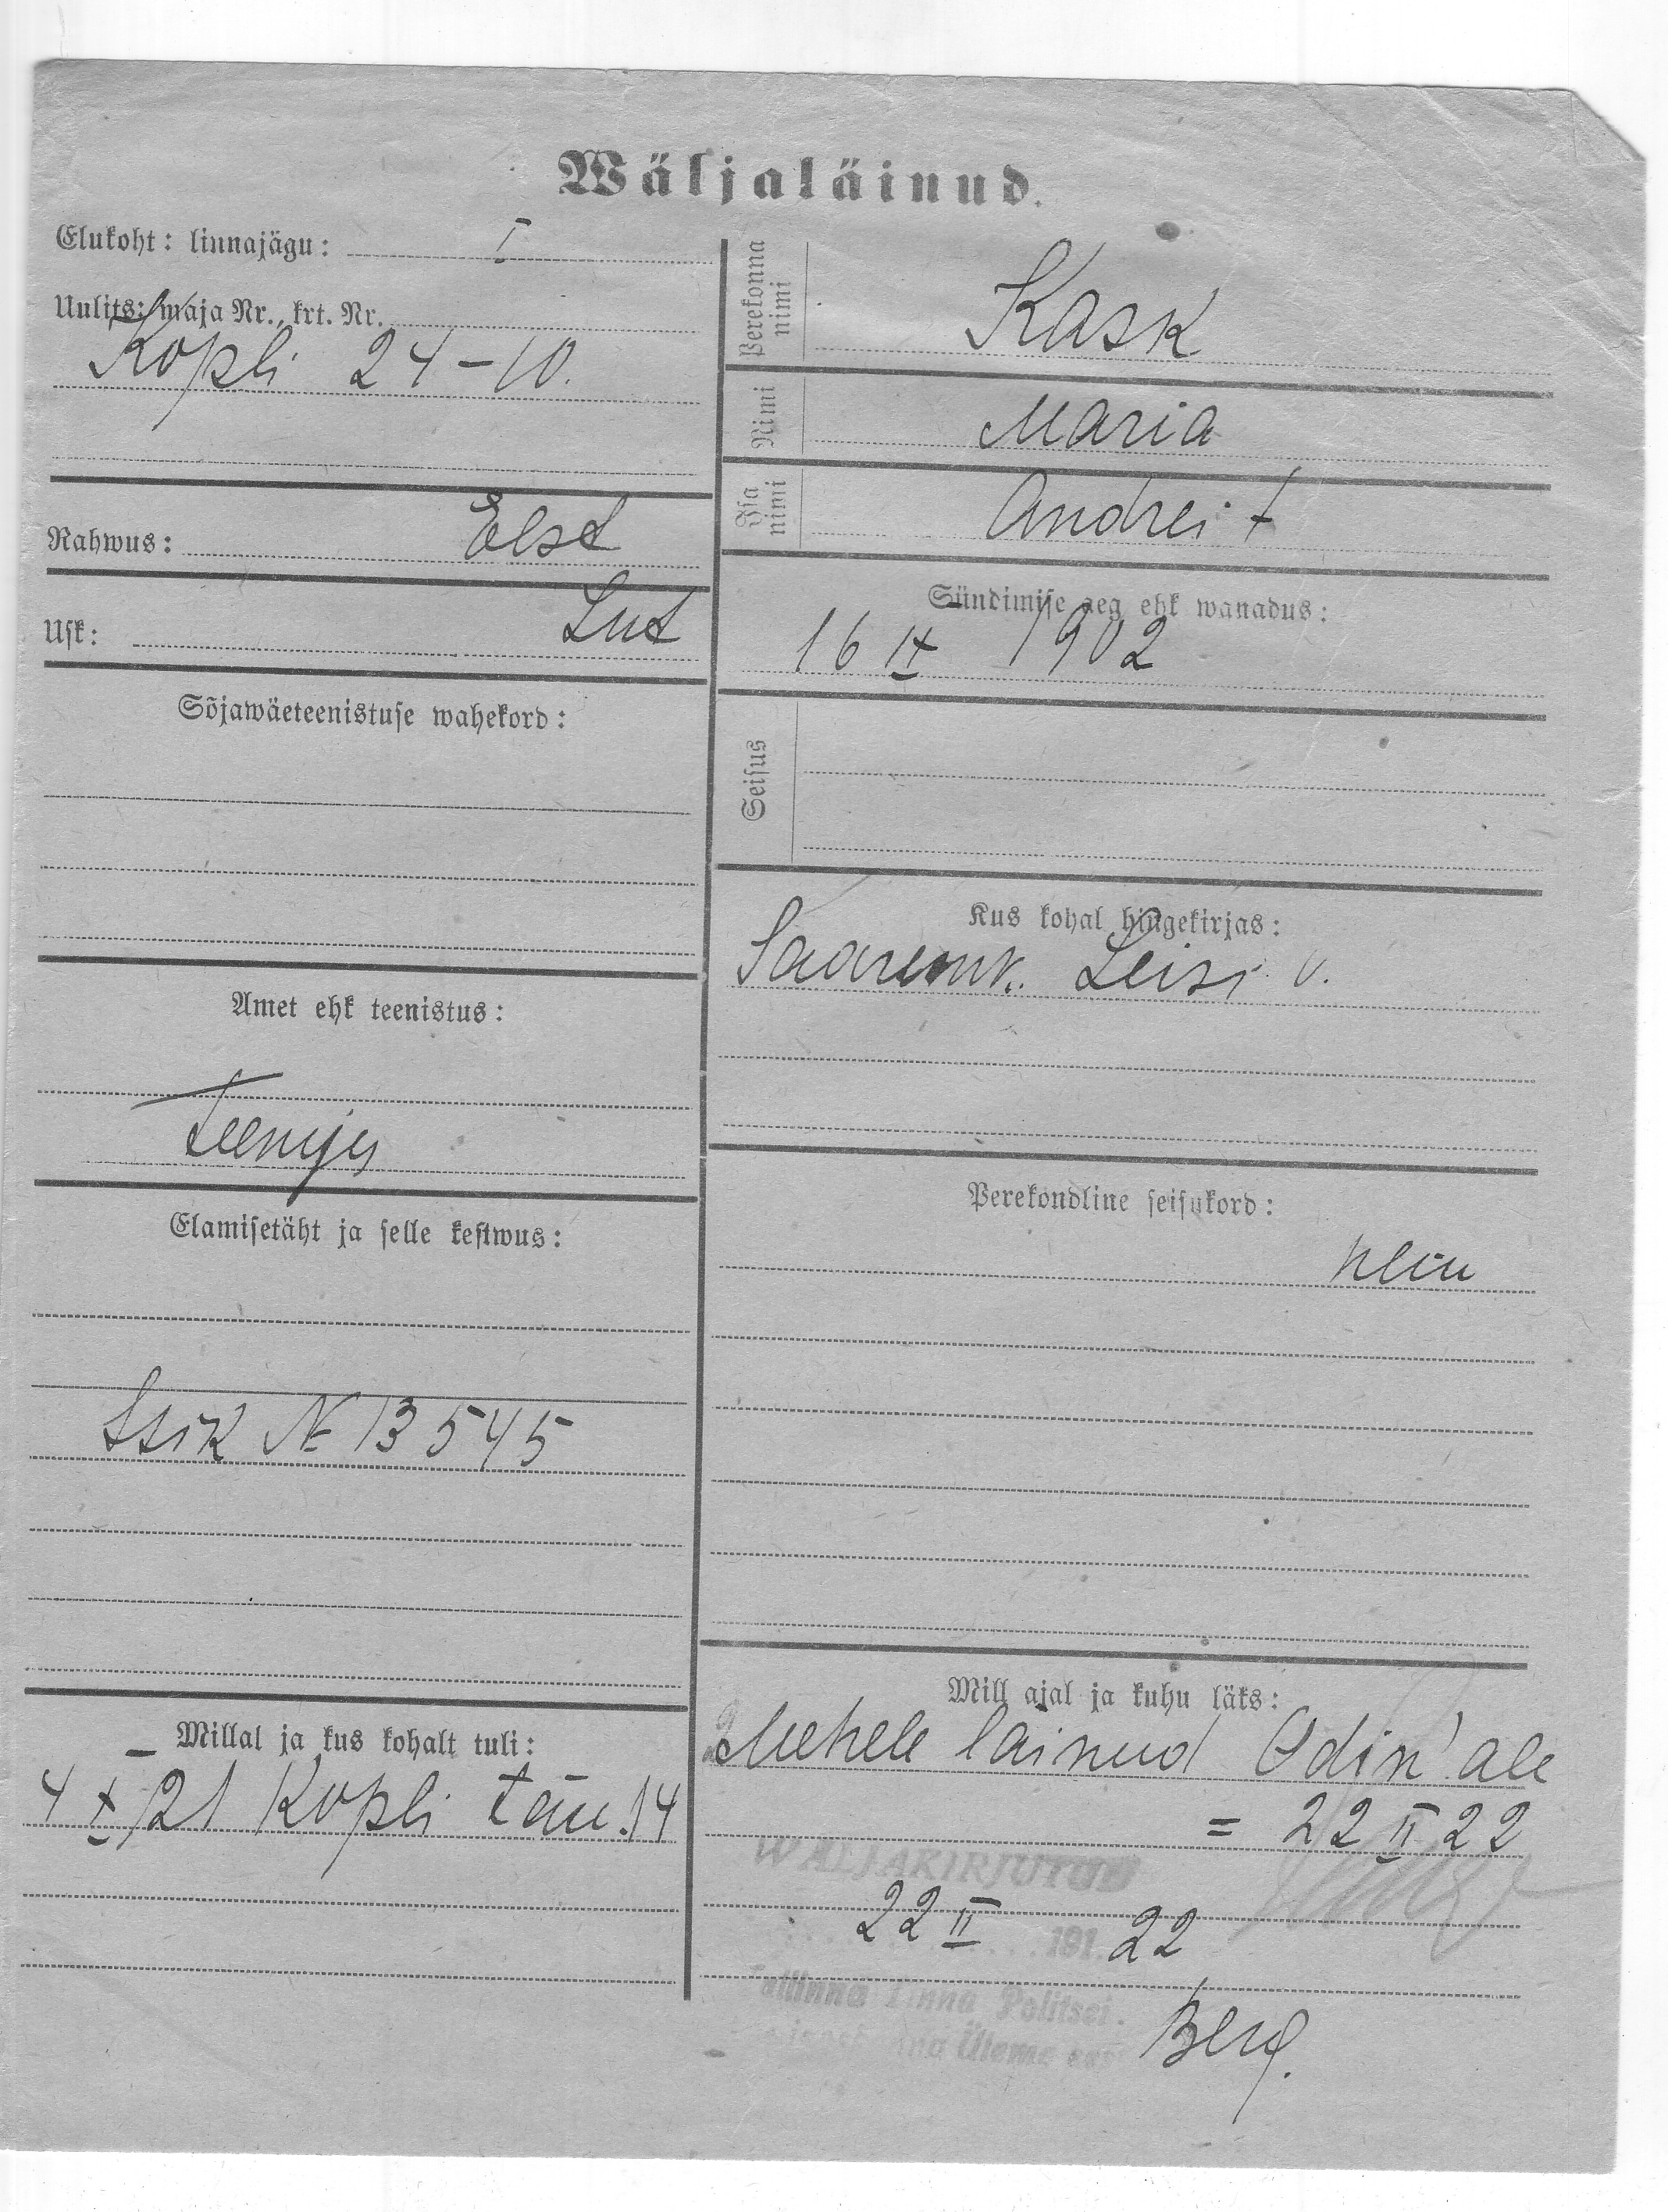 Wäljaläinud.
Elukoht: linnajägu: I
Uulits: maja Nr., krt. Nr.
Kopli 24-10.
Rahwus: Eest
Usk: Lut
Sõjawäeteenistuse wahekord:
Amet ehk teenistus:
Teenija
Elamisetäht ja selle kestwus:
№ 13545
Millal ja kus kohalt tuli:
4 X 21 Kopli tän. 14
Perekonna nimi
Kask
Nimi
Maria
Isa nimi
Andrei t
Sündimise aeg ehk wanadus:
16 IX 1902
Seisus
Kus kohal hingekirjas:
Saarem. Leisi v.
Perekondline seisukord:
neiu
Mill ajal ja kuhu läks:
Mehele läinud Odin'ale
= 22 II 22
WÄLJAKIRJUTUD
22 II 191 22
Tallinna Linna Politsei
Berg.